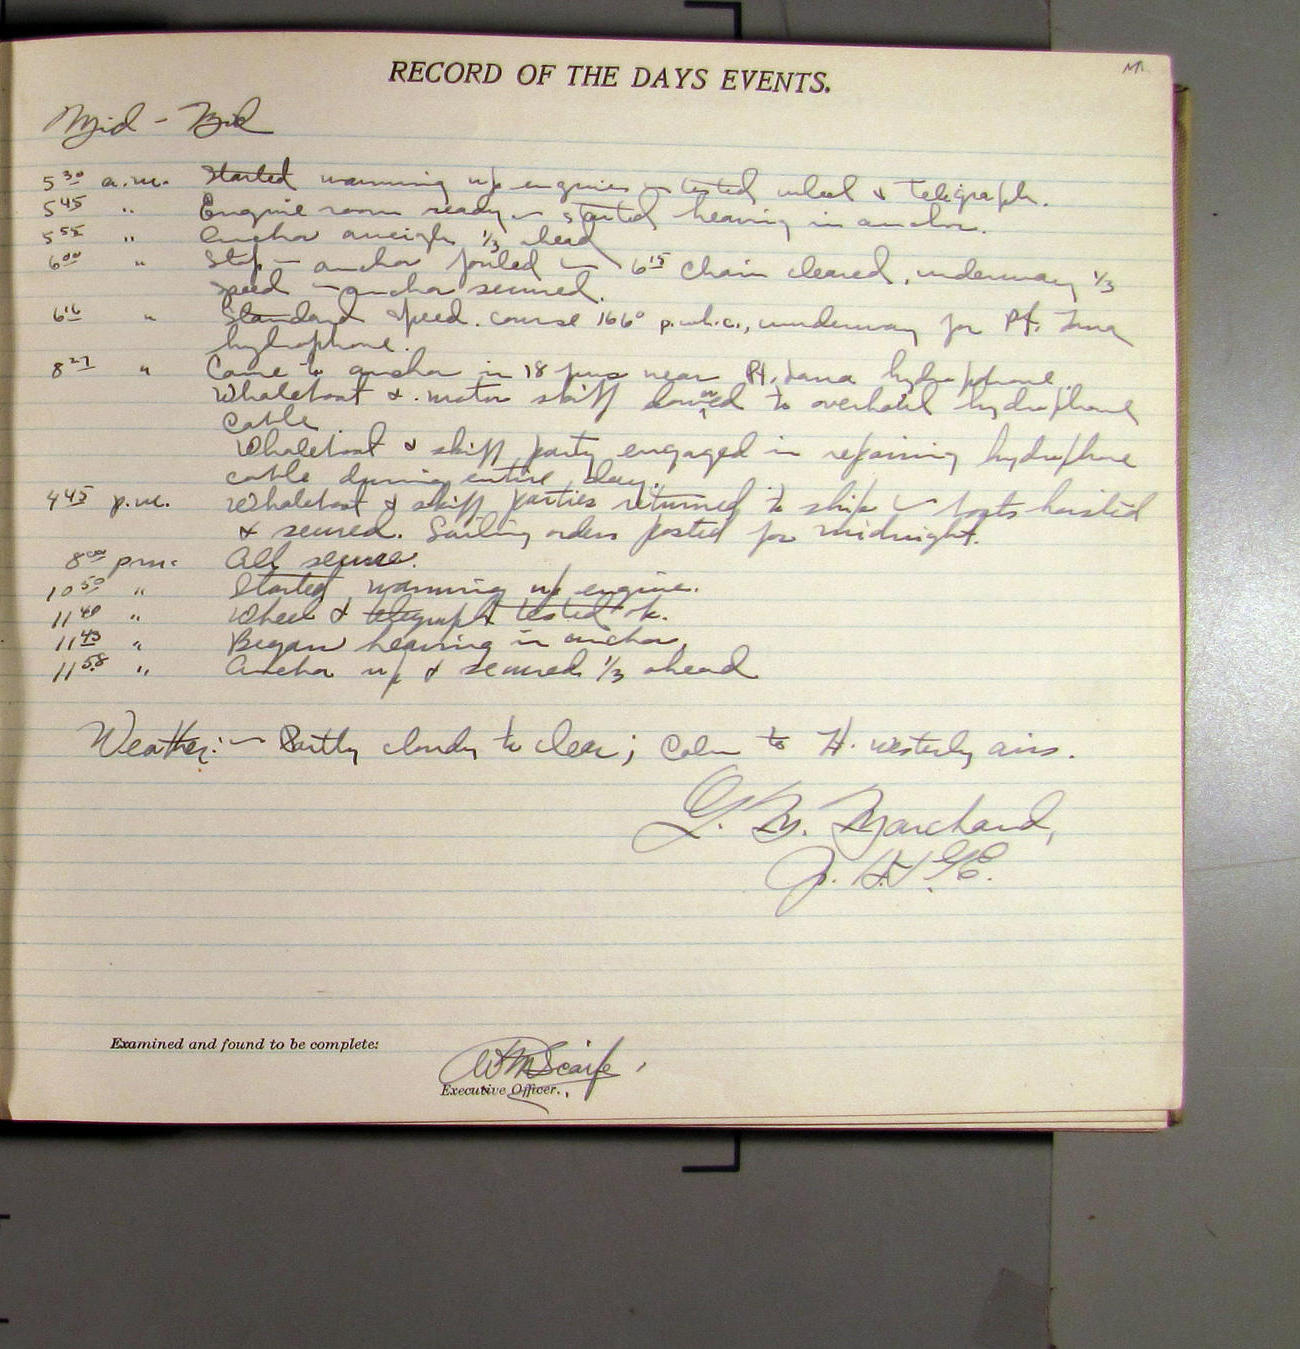 RECORD OF THE DAYS EVENTS.
Mid - Mid
5 30 a.m. Started warming up engines — tested wheel & telegraph.
5 45 " Engine room ready — started heaving in anchor.
5 55 " Anchor aweigh 1/3 ahead
6 00 " Stop — anchor fouled — 6 15 Chain cleared, underway 1/3
speed — anchor secured.
6 16 " Standard speed. course 166° p.wh.c., underway for Pt. Jama
hydrophone.
8 27 " Came to anchor in 18 fms near Pt. Jama hydrophone.
Whaleboat & motor skiff lowered to overhaul hydrophone
cable.
Whaleboat & skiff party engaged in repairing hydrophone
cable during entire day.
4 45 p.m. Whaleboat & skiff parties returned to ship — boats hoisted
& secured. Sailing orders posted for midnight.
8 00 p.m. All secure.
10 50 " Started warming up engine.
11 40 " Wheel & telegraph tested ok.
11 45 " Began heaving in anchor.
11 58 " Anchor up & secured 1/3 ahead
Weather:— Partly cloudy to clear; Calm to N. westerly airs.
G. M. Marchand,
Jr. H. & G.E.
Examined and found to be complete:
Wm Scaife
Executive Officer.